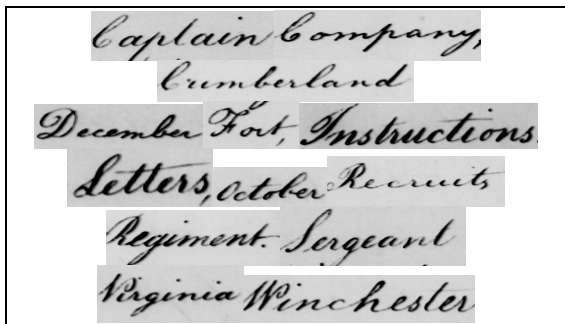 Captain Company,
Cumberland
December Fort, Instructions.
Letters, October Recruits
Regiment. Sergeant
Virginia Winchester